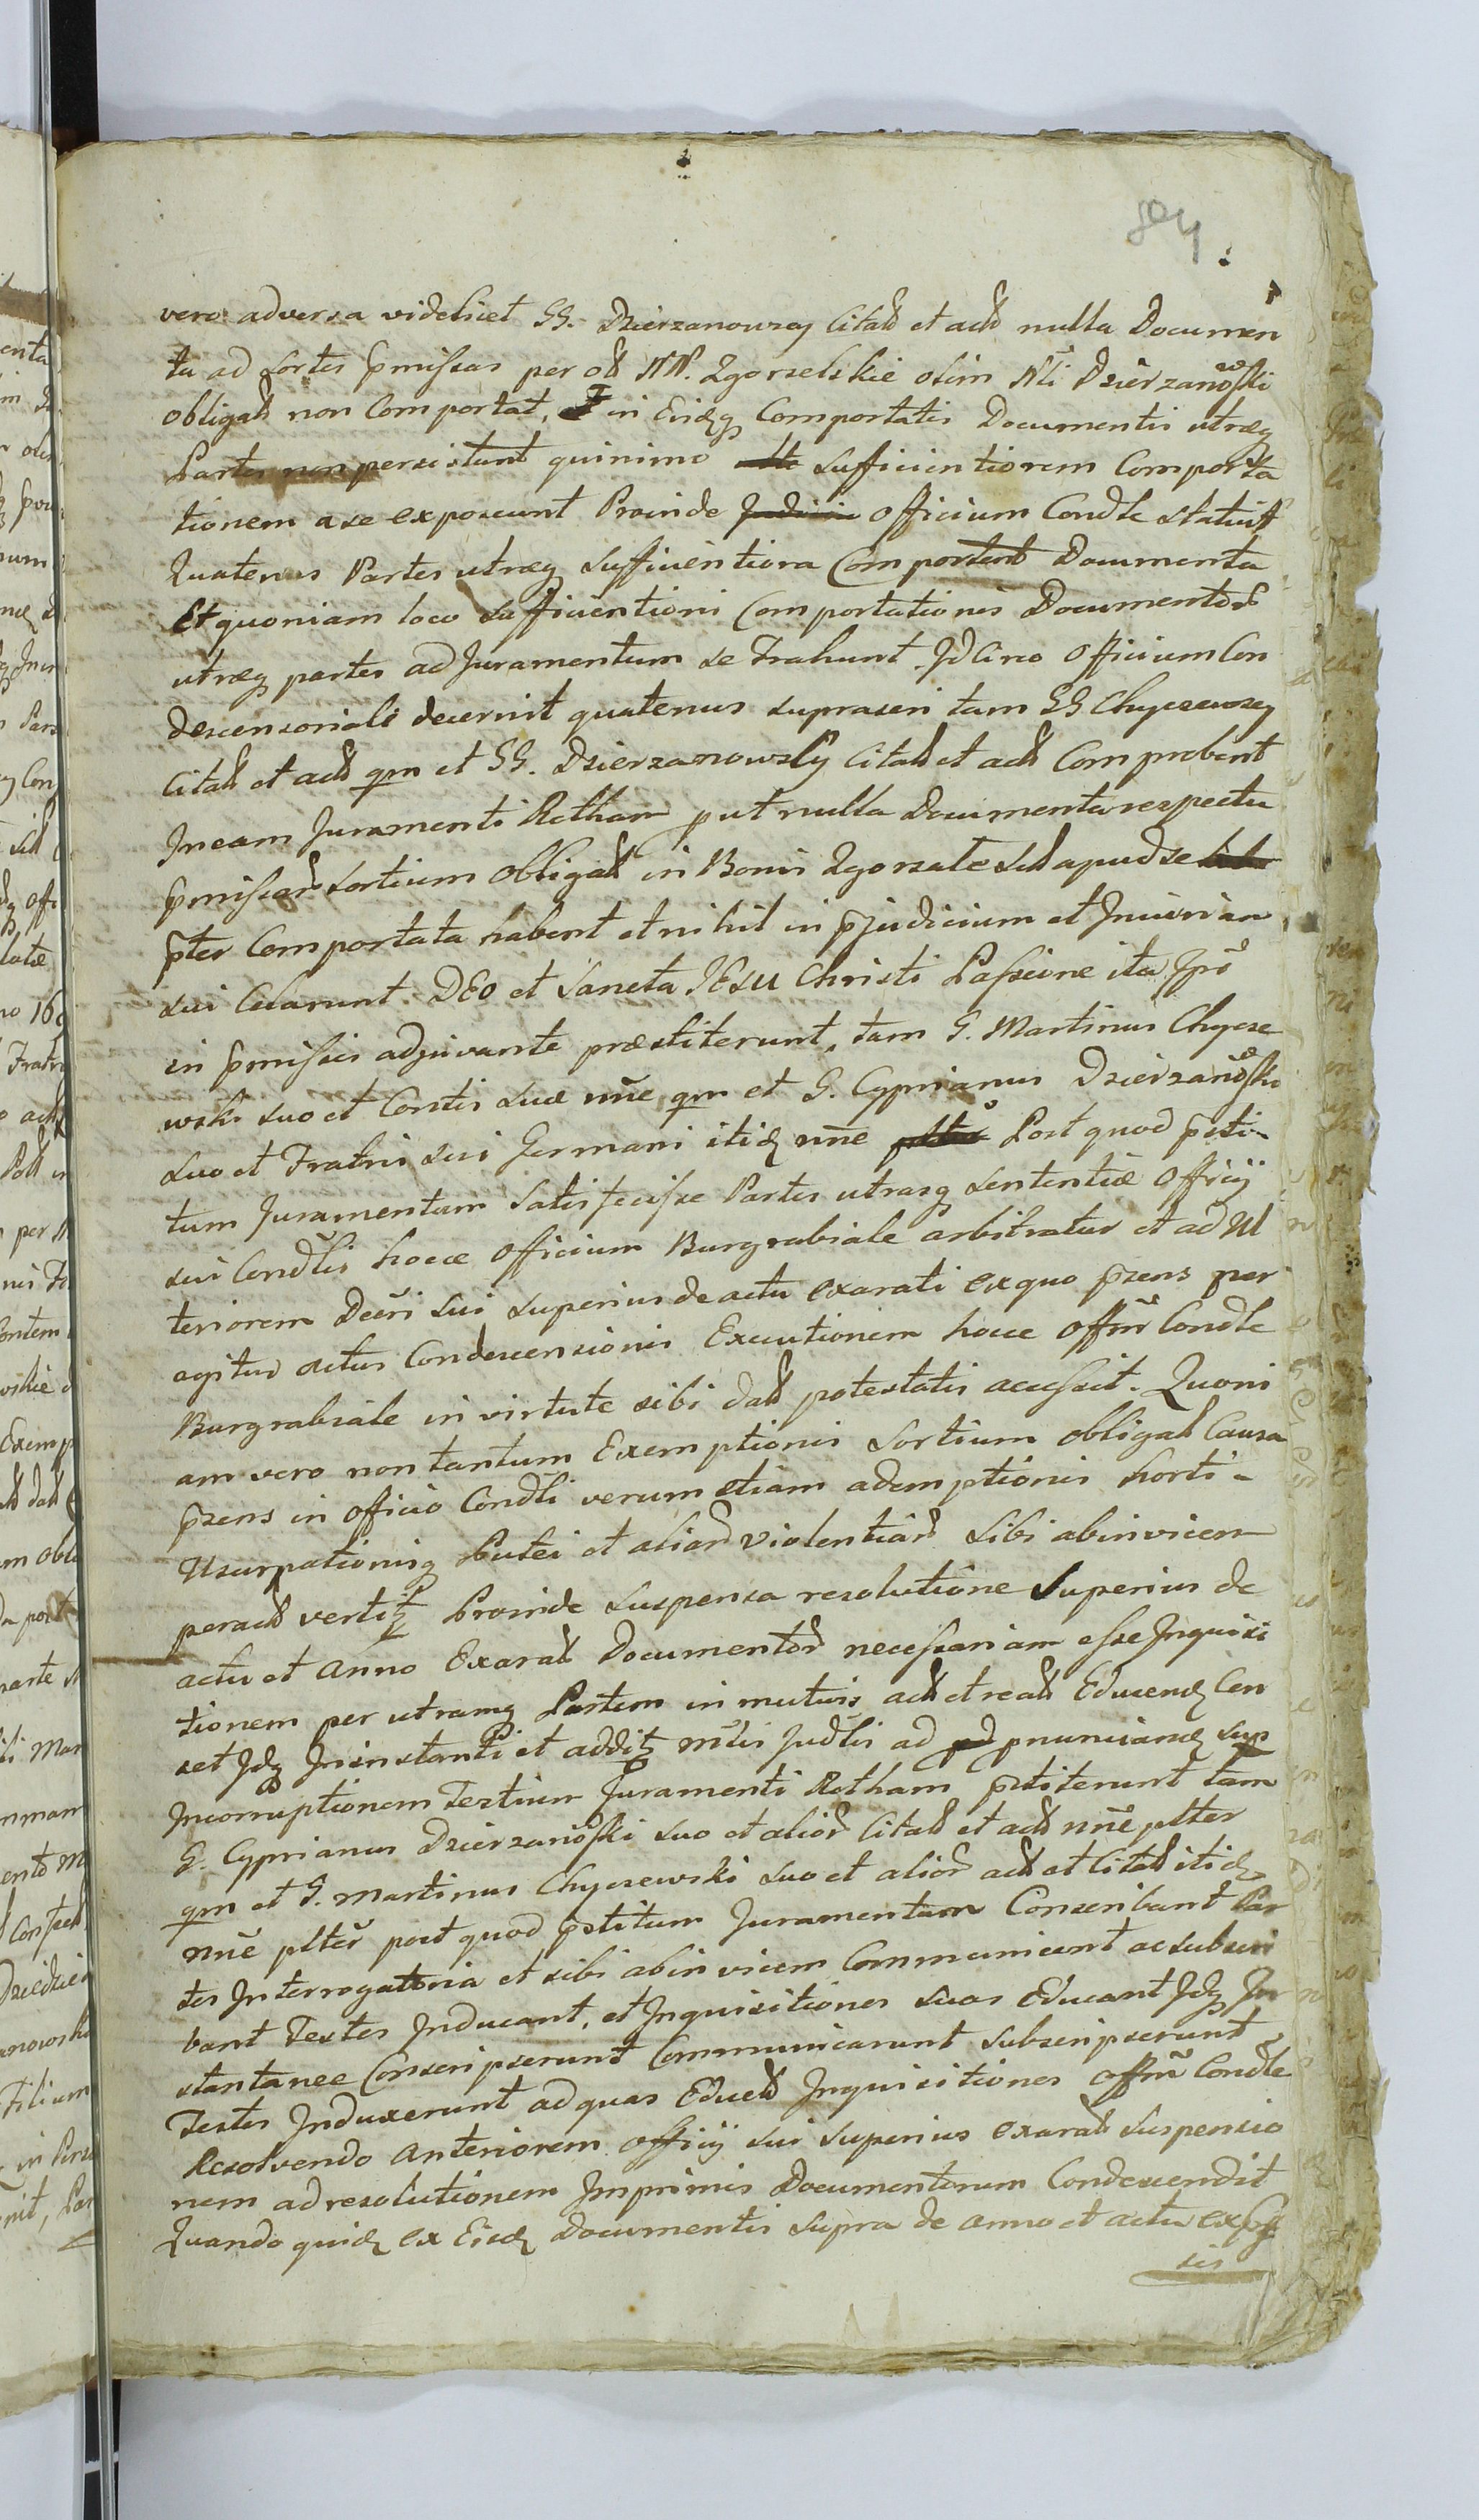 804
vero adversa videlicet GG. Dzierzanowscy Citatt et actt nulla Documen
ta ad Sortes pmissas per ott NN. Zgorzelskie olim Nli Dzierzanowski
obligatt non Comportat, in Eisdq Comportatis Documentis utræq
Partes non persistunt quinimo sufficientiorem Comporta
tionem a se exposcunt Proinde Officium Condle statuit
Quatenus Partes utræq sufficientiora Comportent Documenta
Et quoniam loco sufficientioni Comportationis Documentor
utræq partes ad Juramentum se trahunt Jdcirco Officium Con
descensoriale decernit quatenus supraseri tam GG Chyczewscy
Citatt et actt qm et GG. Dzierzanowscy Citatt et actt Comprobent
In eam Juramenti Rotham put nulla Documenta respectu
pmissar Sortium Obligatt in Bonis Zgorzale sitt apud se
pter Comportata habent et nihil in pjudicium et Iniurian
sui Celarunt. DEO et Sancta JESU Christi Passione ita Jpos
in pmissis adjuvante præstiterunt, tam G. Martinus Chycze
wski suo et Contis suæ nne qm et G. Cyprianus Dzierzanowski
suo et Fratris sui Germani itidq nne Post quod psti
tum Juramentum satisfecisse Partes utrasq sententiæ Officij
sui Condlis hocce Officium Burgrabiale arbitratur et ad Ul
teriorem Decri sui superius de actu exarati ex quo pzens per
agitur actus Condescensionis Executionem hocce Offm Condle
Burgrabiale in virtute sibi datt potestatis accessit. Quoni
am vero non tantum Exemptionis Sortium obligatt Causa
pzens in officio Condli verum etiam ademptionis horti
Usurpationisq Putei et aliar Violentiar Sibi abinvicem
peractt vertitq Proinde suspensa resolutione superius de
actu et Anno Exaratt Documentor necessariam esse Inquisi
tionem per utramq Partem in mutuis actt et reatt Educendq Cen
set Jdq In instanti et additq mlis Judlis ad pnunciandq sup
Incorruptionem Testium Juramenti Rotham pstiterunt tam
G. Cyprianus Dzierzanowski suo et alior Citatt et actt nne plter
qm et G. Martinus Chyczewski suo et alior actt et Citatt itidq
nne plter post quod pstitum Juramentum Conscribant Par
tes Interrogatoria et sibi abinvicem Communicent ac subscri
bant Testes Inducant, et Inquisitiones suas Educant Jdq In
stantanee Conscripserunt Communicarunt subscripserunt
Testes Induxerunt ad quas Eductt Inquisitiones Offm Condle
Resolvendo Anteriorem officij sui superius exaratt suspensio
nem ad resolutionem Imprimis Documentorum Condescendit
Quando quidq ex Eisdq Documentis supra de anno et actu expres
sis